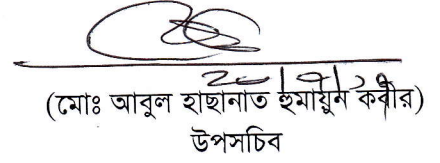 (মোঃ আবুল হাছানাত হুমায়ুন কবীর)
উপসচিব